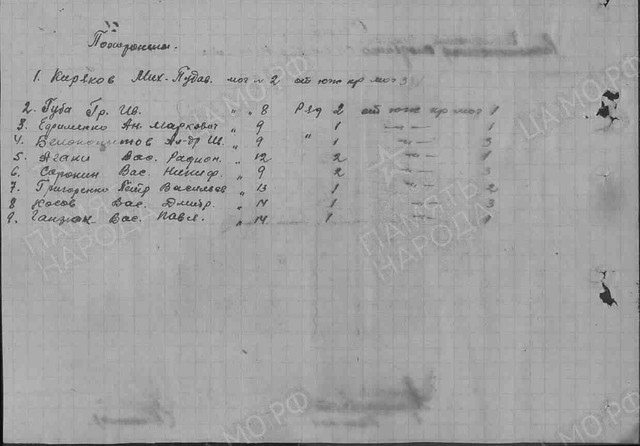 Похоронены.
1. Киряков Мих. Пудов. мог № 2 от юж кр мог 3
2. Губа Гр. Ив. " " 8 Ряд 2 от юж кр мог 1
3. Ефименко Ан Маркович " 9 " 1 —"— 1
4. Ал-др Ив. " 9 1 —"— 3
5. Агаки Вас. Радион. " 12 2 —"— 1
6. Сорокин Вас. Никиф. " 9 2 —"— 3
7. Григоренко Пётр Васильев " 13 1 —"— 2
8 Косов Вас. Дмитр. " 14 1 —"— 3
9. Вас. Павл. " 14 1 —"— 1
ПАМЯТЬ НАРОДА
ЦА·МО·РФ